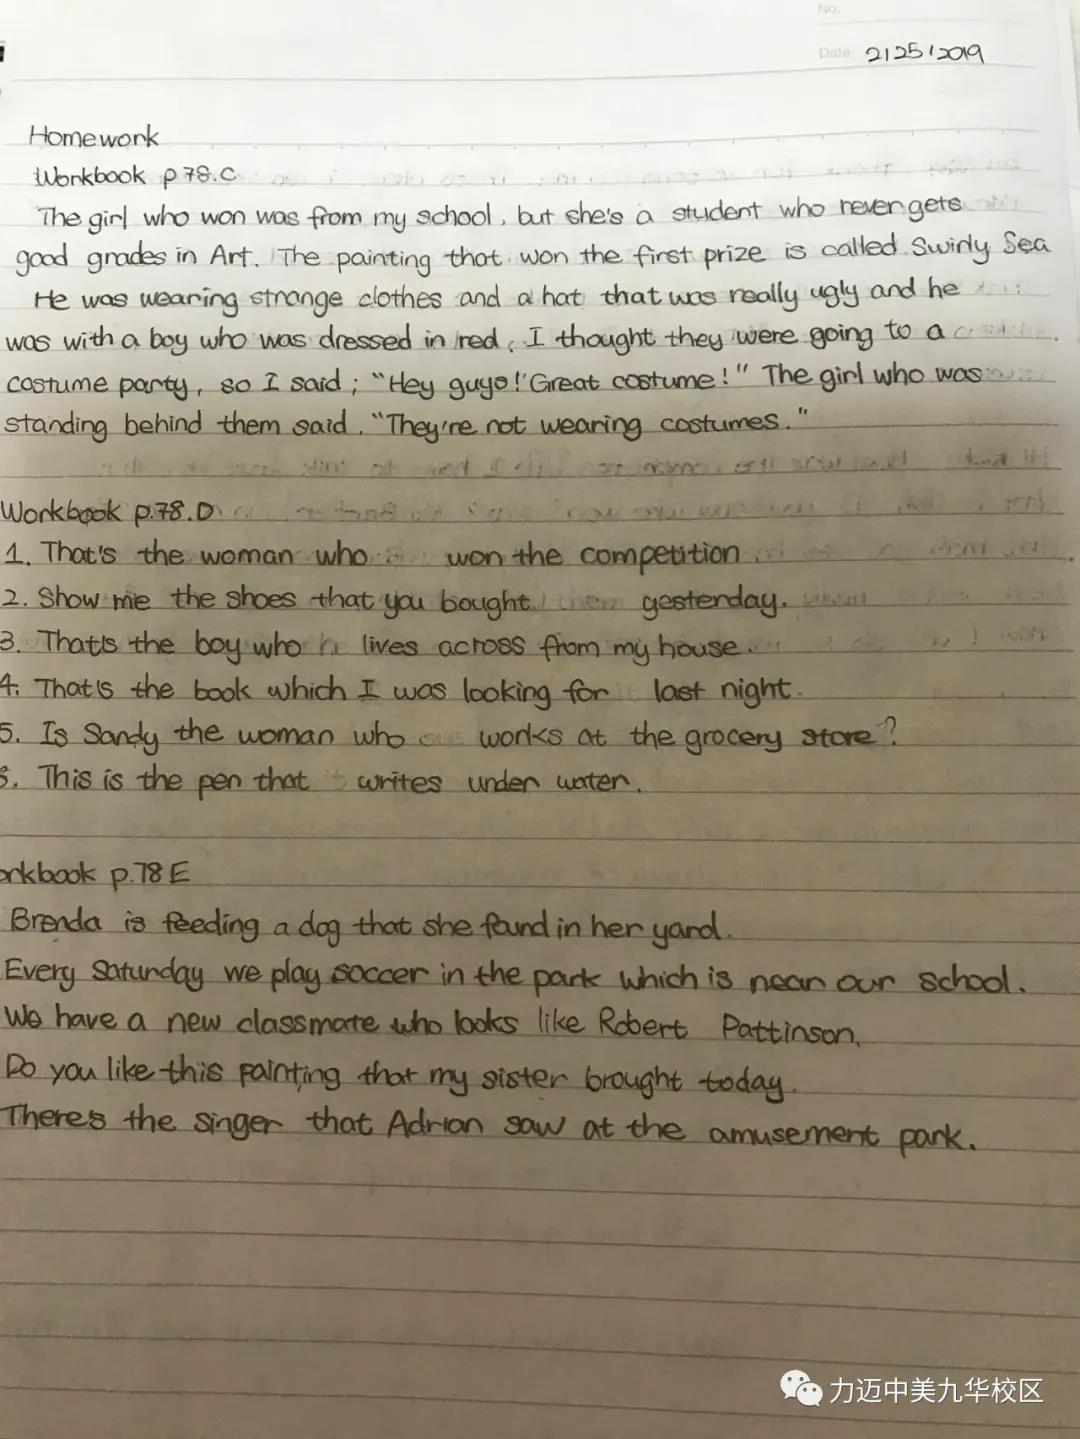 No.
Date 212512019
Homework
Workbook p78.C
The girl who won was from my school, but she's a student who never gets
good grades in Art. The painting that won the first prize is called Swirly Sea
He was wearing strange clothes and a hat that was really ugly and he
was with a boy who was dressed in red, I thought they were going to a
costume party, so I said; "Hey guys! Great costume!" The girl who was
standing behind them said. "They're not wearing costumes."
Workbook p.78.D
1. That's the woman who won the competition
2. Show me the shoes that you bought gestenday.
3. That's the boy who lives across from my house.
4. That's the book which I was looking for last night.
5. Is Sandy the woman who works at the grocery store?
6. This is the pen that writes under water.
orkbook p.78 E
Brenda is feeding a dog that she found in her yard.
Every Saturday we play soccer in the park which is near our school.
We have a new classmate who looks like Robert Pattinson.
Do you like this painting that my sister brought today.
There's the singer that Adrian saw at the amusement park.
力迈中美九华校区